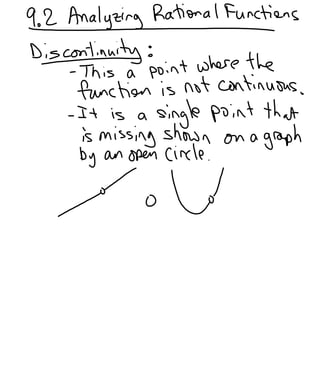 9.2 Analyzing Rational Functions
Discontinuity:
-This a point where the
function is not continuous.
-It is a single point that
is missing shown on a graph
by an open circle.